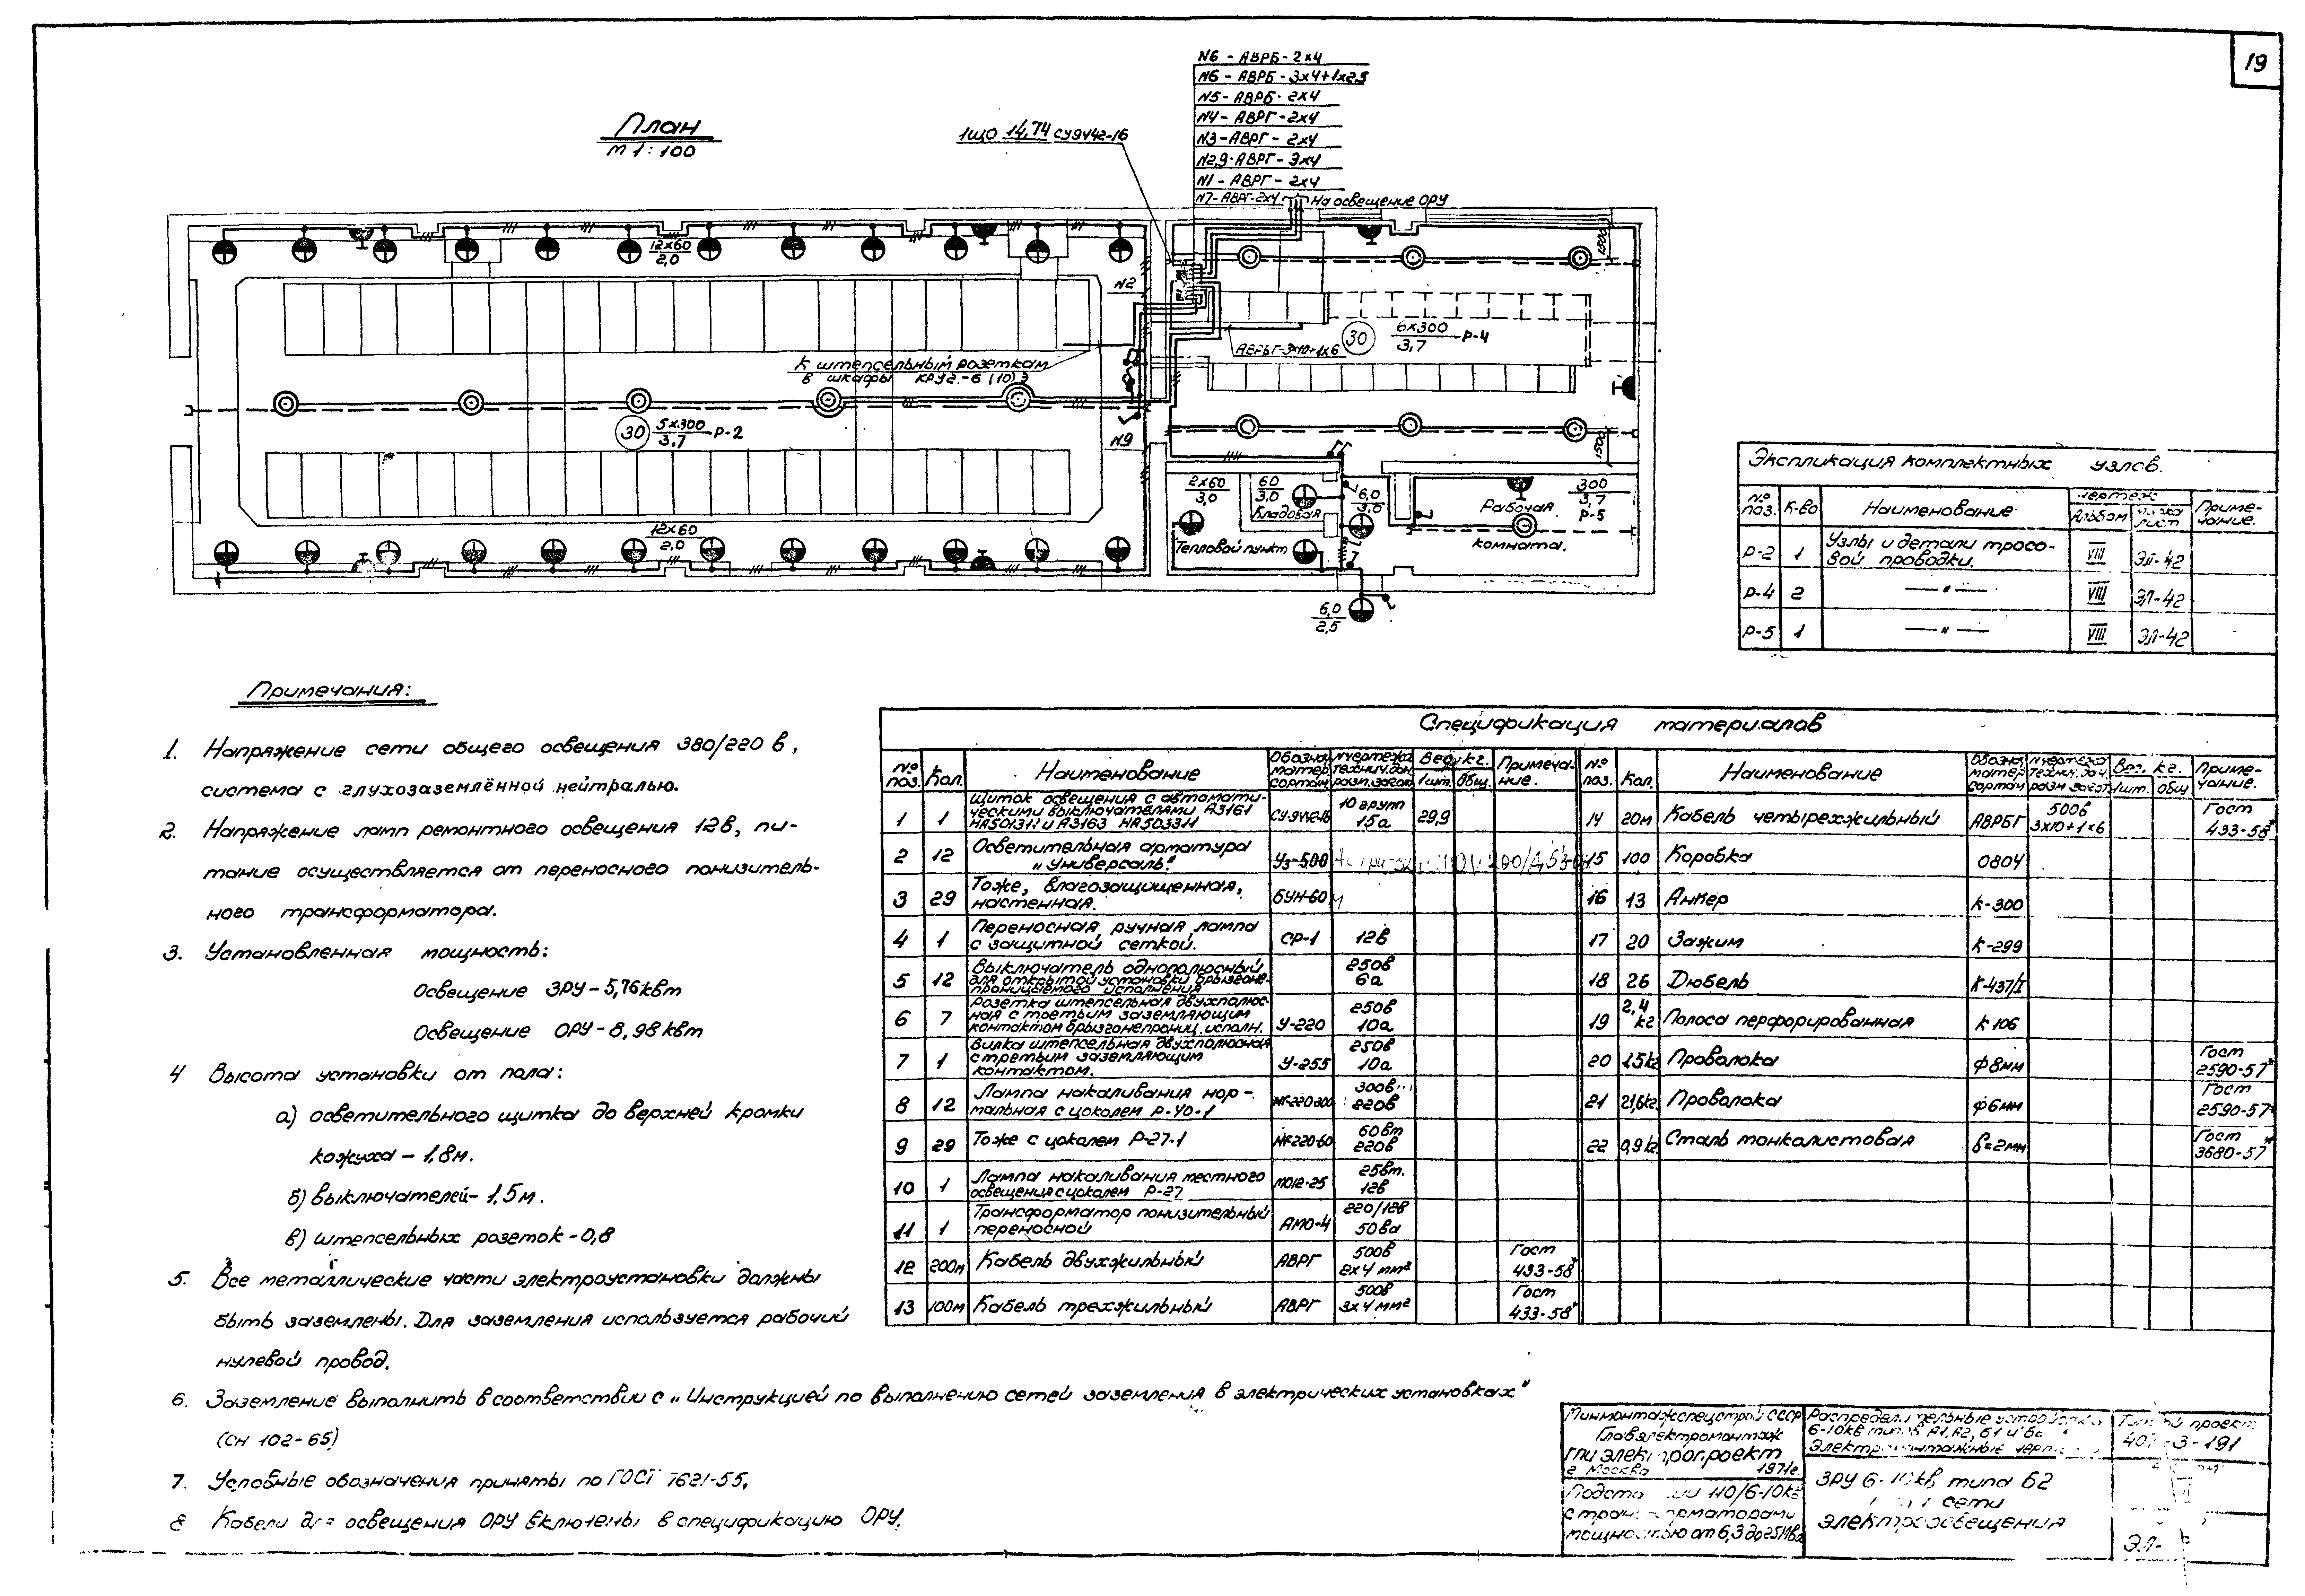 19
План
М 1:100
1ЩО 14,74 СУ9442-16
N6 - АВРБ - 2х4
N6 - АВРБ - 3х4+1х2,5
N5 - АВРБ - 2х4
N4 - АВРГ - 2х4
N3 - АВРГ - 2х4
N2,9 - АВРГ - 3х4
N1 - АВРГ - 2х4
N7 - АВРГ - 2х4
На освещение ОРУ
12х60
2,0
N2
1500
К штепсельным розеткам
в шкафы КРУ2-6 (10) Э
АВРБГ-3х10+1х6
30
6х300
3,7
Р-4
30
5х300
3,7
Р-2
N9
1500
12х60
2,0
2х60
3,0
60
3,0
Кладовая
6,0
3,0
Рабочая
комната.
300
3,7
Р-5
Тепловой пункт
6,0
2,5
Экспликация комплектных узлов.
№ поз. К-во Наименование Чертеж Альбом лист Приме-чание.
Р-2 1 Узлы и детали тросо-
вой проводки. VIII ЭЛ-42
Р-4 2 — " — VIII ЭЛ-42
Р-5 1 — " — VIII ЭЛ-42
Примечания:
1. Напряжение сети общего освещения 380/220 в,
система с глухозаземлённой нейтралью.
2. Напряжение ламп ремонтного освещения 12в, пи-
тание осуществляется от переносного понизитель-
ного трансформатора.
3. Установленная мощность:
Освещение ЗРУ - 5,76 квт
Освещение ОРУ - 8,98 квт
4 Высота установки от пола:
а) осветительного щитка до верхней кромки
кожуха - 1,8м.
б) выключателей - 1,5м.
в) штепсельных розеток - 0,8
5. Все металлические части электроустановки должны
быть заземлены. Для заземления используется рабочий
нулевой провод.
6. Заземление выполнить в соответствии с „Инструкцией по выполнению сетей заземления в электрических установках"
(СН 102-65)
7. Условные обозначения приняты по ГОСТ 7621-55.
8 Кабели для освещения ОРУ включены в спецификацию ОРУ.
Спецификация материалов
№ поз. Кол. Наименование Обознач. матер. сортам. №чертежа технич.дан. разм.загот. Вес, кг. 1шт. Общ. Примеча-ние.
1 1 Щиток освещения с автомати-
ческими выключателями А3161
НА501311 и А3163 НА503311 СУ-9442-16 10 групп 15а 29,9
2 12 Осветительная арматура
„Универсаль". Уз-500
3 29 Тоже, влагозащищенная,
настенная. БУН-60м
4 1 Переносная ручная лампа
с защитной сеткой. СР-1 12в
5 12 Выключатель однополюсный
для открытой установки брызгоне-
проницаемого исполнения 250в 6а
6 7 Розетка штепсельная двухполюс-
ная с третьим заземляющим
контактом брызгонепрониц. исполн. У-220 250в 10а
7 1 Вилка штепсельная двухполюсная
с третьим заземляющим
контактом. У-255 250в 10а
8 12 Лампа накаливания нор-
мальная с цоколем Р-40-1 НГ-220-300 300в 220в
9 29 Тоже с цоколем Р-27-1 НГ-220-60 60вт 220в
10 1 Лампа накаливания местного
освещения с цоколем Р-27 МО12-25 25вт. 12в
11 1 Трансформатор понизительный
переносной АМО-4 220/12в 50ва
12 200м Кабель двухжильный АВРГ 500в 2х4 мм² Гост 433-58*
13 100м Кабель трехжильный АВРГ 500в 3х4 мм² Гост 433-58*
№ поз. Кол. Наименование Обознач. матер. сортам. №чертежа технич.дан. разм.загот. Вес, кг. 1шт. Общ. Приме-чание.
14 20м Кабель четырехжильный АВРБГ 500в 3х10+1х6 Гост 433-58*
15 100 Коробка 0804
16 13 Анкер К-300
17 20 Зажим К-299
18 26 Дюбель К-437/I
19 2,4 кг Полоса перфорированная К 106
20 1,5кг Проволока Ф8мм Гост 2590-57*
21 21,6кг. Проволока Ф6мм Гост 2590-57*
22 0,9кг. Сталь тонколистовая б=2мм Гост 3680-57*
Минмонтажспецстрой СССР
Главэлектромонтаж
ГПИ электропроект
г Москва 1971г.
110/6-10кв
мощностью от 6,3 до 25
Распределительные устройства
6-10кв типов А1, А2, Б1 и
Электромонтажные
ЗРУ 6-10кв типа Б2
сети
Электроосвещения
проект
3-191
ЭЛ-